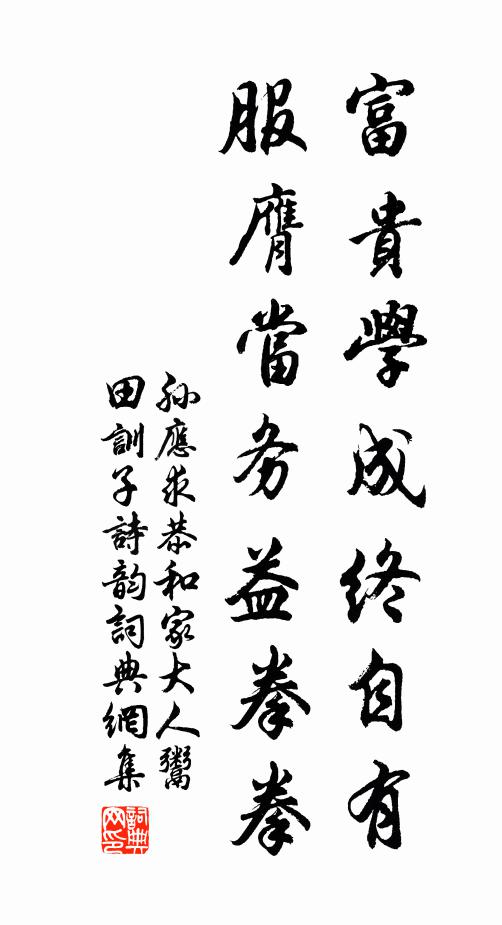 富貴學成終自有
服膺當务益拳拳
孙應求恭和家大人鬻
田訓子詩韵詞典網集
詞典网印